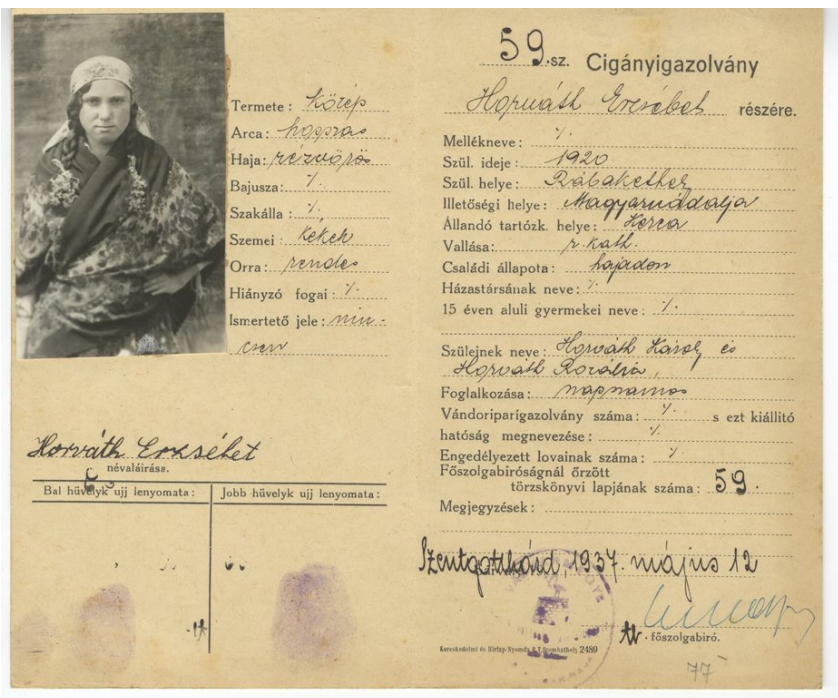 59.sz. Cigányigazolvány
Horváth Erzsébet részére.
Termete: közép
Arca: hosszas
Haja: rézvörös
Bajusza: ⁒
Szakálla: ⁒
Szemei: kékek
Orra: rendes
Hiányzó fogai: ⁒
Ismertető jele: nin-
csen
Horváth Erzsébet
névaláirása.
Bal hüvelyk ujj lenyomata: Jobb hüvelyk ujj lenyomata:
Mellékneve: ⁒
Szül. ideje: 1920
Szül. helye: Rábakethely
Illetőségi helye: Magyarnádalja
Állandó tartózk. helye: Kerca
Vallása: r. kath.
Családi állapota: hajadon
Házastársának neve: ⁒
15 éven aluli gyermekei neve: ⁒
Szüleinek neve: Horváth Károly és
Horváth Rozália,
Foglalkozása: napszámos
Vándoriparigazolvány száma: ⁒ s ezt kiállitó
hatóság megnevezése: ⁒
Engedélyezett lovainak száma: ⁒
Főszolgabiróságnál őrzött
törzskönyvi lapjának száma: 59.
Megjegyzések:
Szentgotthárd, 1937. május 12
főszolgabiró.
Kereskedelmi és Hirlap-Nyomda R.T. Szombathely 2489
77